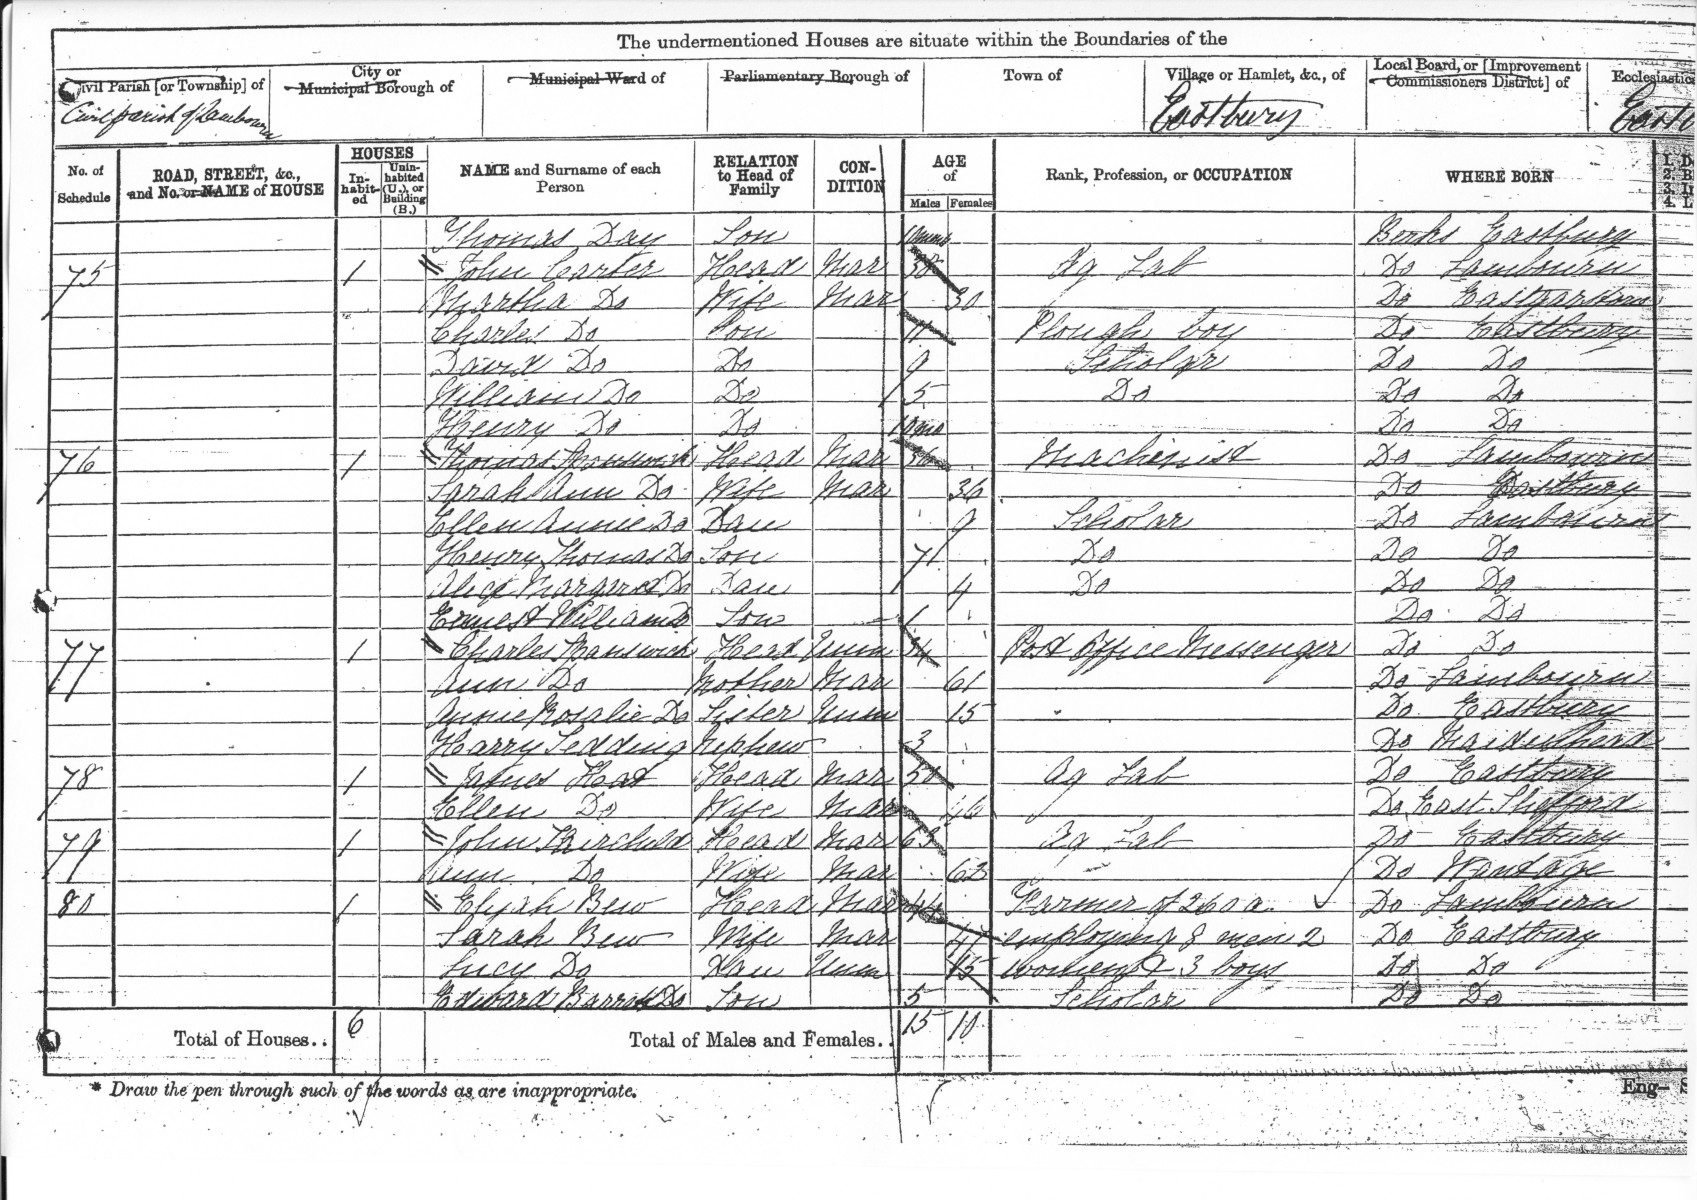 The undermentioned Houses are situate within the Boundaries of the
Civil Parish [or Township] of City or Municipal Borough of Municipal Ward of Parliamentary Borough of Town of Village or Hamlet, &c., of Local Board, or [Improvement Commissioners District] of Ecclesiastic
Civil parish of Lambourn Eastbury Eastb
No. of Schedule ROAD, STREET, &c., and No. or NAME of HOUSE HOUSES In-habit-ed Unin-habited (U.), or Building (B.) NAME and Surname of each Person RELATION to Head of Family CON-DITION AGE of Males Females Rank, Profession, or OCCUPATION WHERE BORN
Thomas Day Son 10 mnths Berks Eastbury
75 1 John Carter Head Mar 38 Ag Lab Do Lambourn
Martha Do Wife Mar 30 Do Eastgarston
Charles Do Son 11 Plough boy Do Eastbury
David Do Do 9 Scholar Do Do
William Do Do 5 Do Do Do
Henry Do Do 10 mo Do Do
76 1 Thomas Head Mar Machinist Do Lambourn
Sarah Ann Do Wife Mar 36 Do Eastbury
Ellen Annie Do Dau 9 Scholar Do Lambourn
Henry Thomas Do Son 7 Do Do Do
Alice Margaret Do Dau 4 Do Do Do
Ernest William Do Son 1 Do Do
77 1 Charles Head Unm 34 Post Office Messenger Do Do
Ann Do Mother Mar 61 Do Lambourn
Annie Rosalie Do Sister Unm 15 Do Eastbury
Harry Nephew 3 Do Maidenhead
78 1 James Head Mar 50 Ag Lab Do Eastbury
Ellen Do Wife Mar 46 Do East Shefford
79 1 John Head Mar 63 Ag Lab Do Eastbury
Ann Do Wife Mar 63 Do Wantage
80 1 Elijah Bew Head Mar 44 Farmer of 260 a. Do Lambourn
Sarah Bew Wife Mar 47 employing 8 men 2 Do Eastbury
Lucy Do Dau Unm 15 women & 3 boys Do Do
Edward Do Son 5 Scholar Do Do
Total of Houses.. 6 Total of Males and Females.. 15 10
* Draw the pen through such of the words as are inappropriate.
Eng—